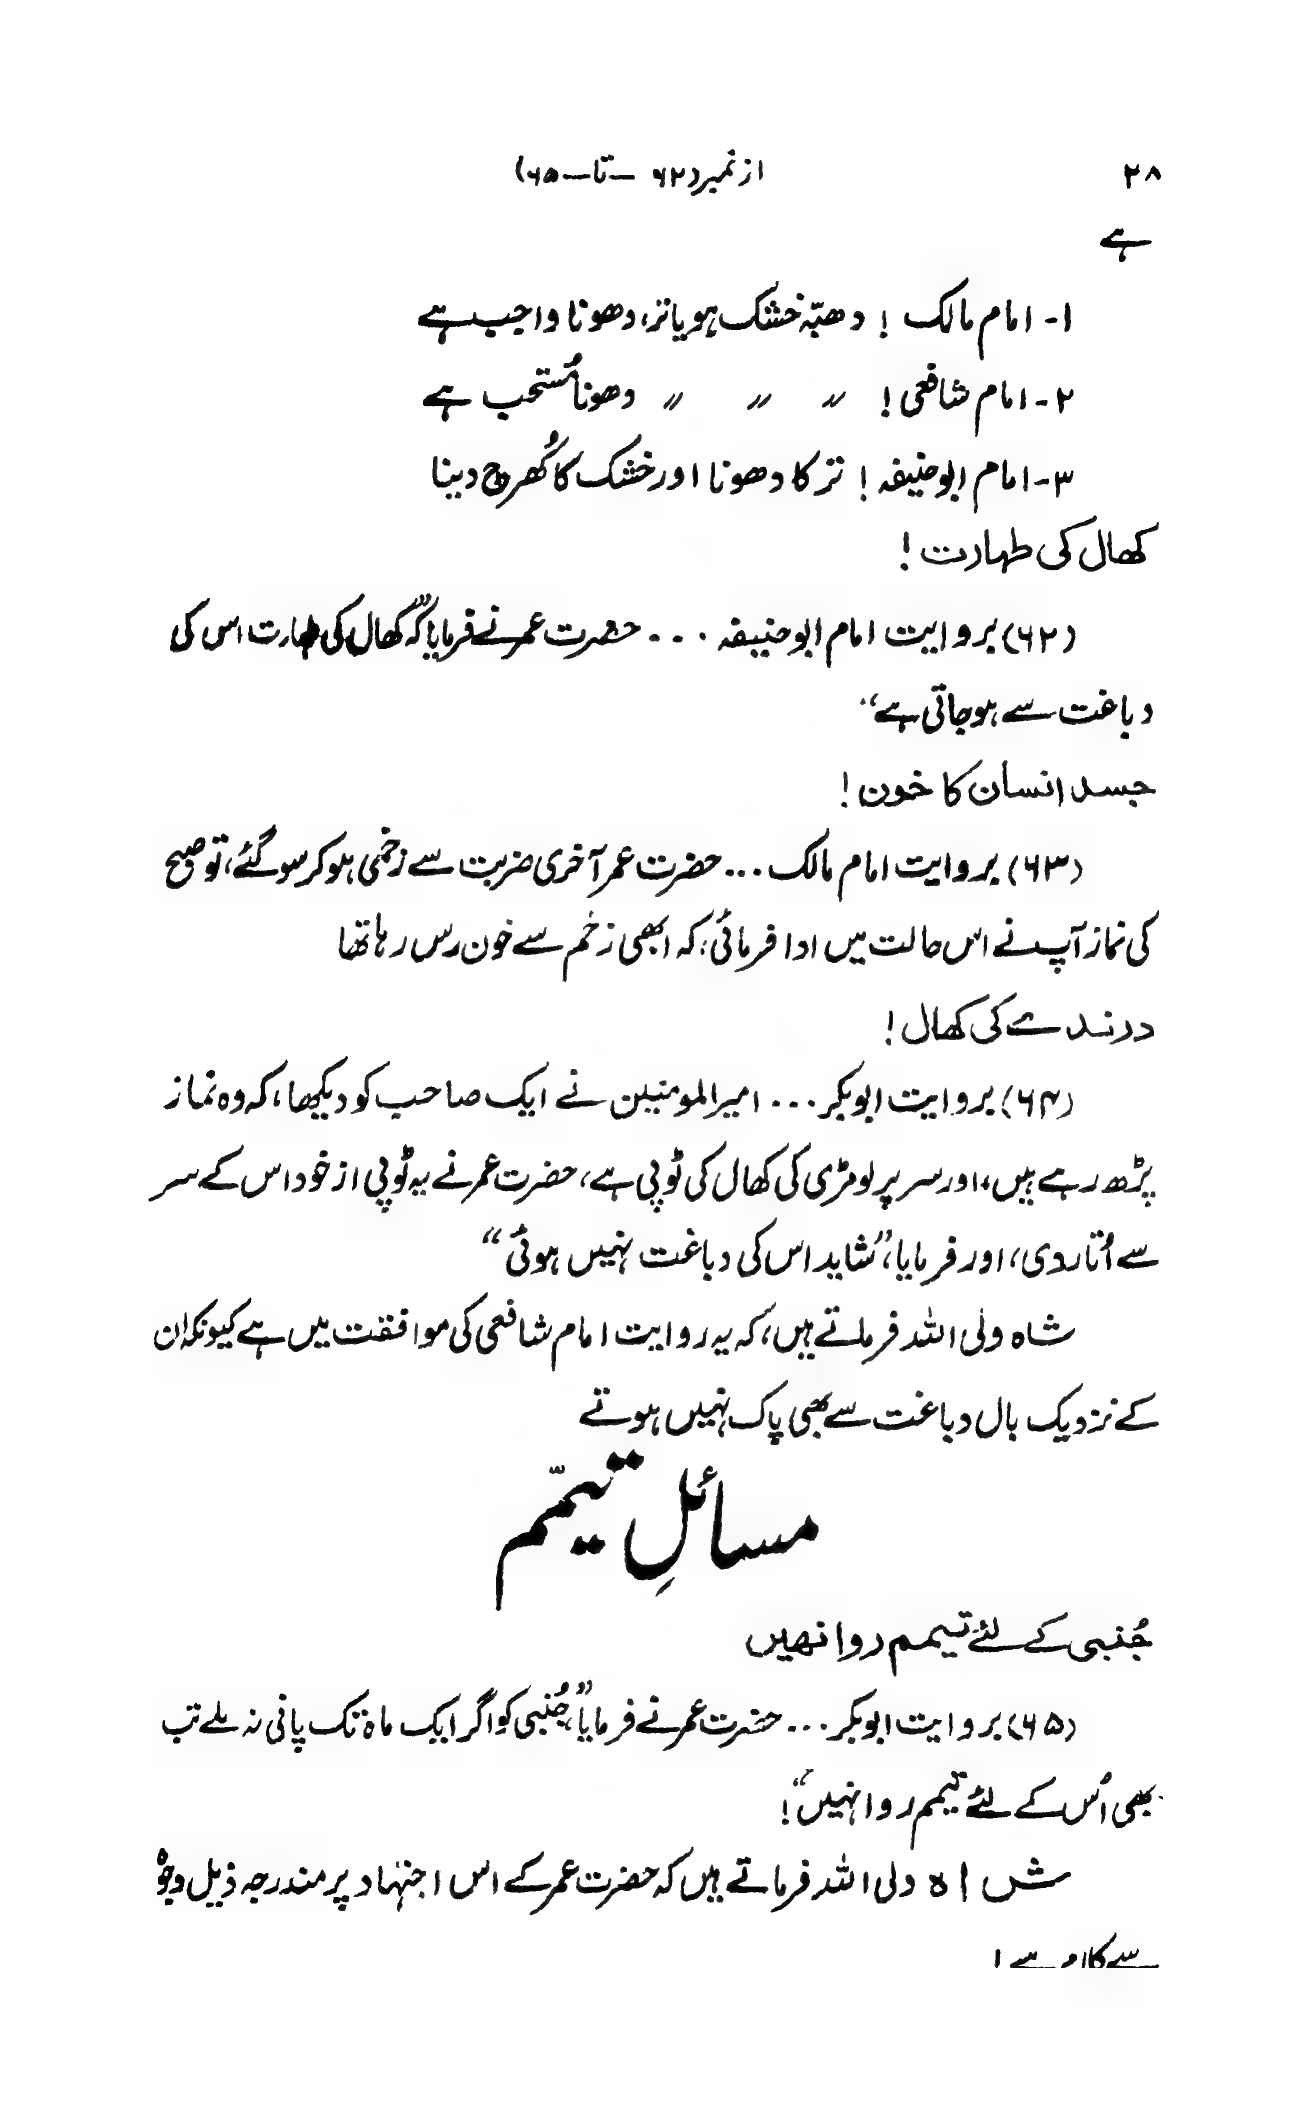 ۲۸ از نمبر (۶۲ — تا — ۶۵)
ہے
۱- امام مالک ! دھبّہ خشک ہو یا تر، دھونا واجب ہے
۲- امام شافعی ! 〃 〃 〃 دھونا مُستحب ہے
۳- امام ابوحنیفہ ! تر کا دھونا اور خشک کا کُھرچ دینا
کھال کی طہارت !
(۶۲) بروایت امام ابوحنیفہ ... حضرت عمر نے فرمایا کہ ”کھال کی طہارت اس کی
دباغت سے ہو جاتی ہے“
جسد انسان کا خون !
(۶۳) بروایت امام مالک ... حضرت عمر آخری ضربت سے زخمی ہو کر سو گئے، تو صبح
کی نماز آپ نے اس حالت میں ادا فرمائی، کہ ابھی زخم سے خون رس رہا تھا
درندے کی کھال !
(۶۴) بروایت ابوبکر ... امیرالمومنین نے ایک صاحب کو دیکھا، کہ وہ نماز
پڑھ رہے ہیں، اور سر پر لومڑی کی کھال کی ٹوپی ہے، حضرت عمر نے یہ ٹوپی از خود اس کے سر
سے اُتار دی، اور فرمایا، ”شاید اس کی دباغت نہیں ہوئی“
شاہ ولی اللہ فرماتے ہیں، کہ یہ روایت امام شافعی کی موافقت میں ہے کیونکہ ان
کے نزدیک بال دباغت سے بھی پاک نہیں ہوتے
مسائلِ تیمّم
جُنبی کے لئے تیمم روا نہیں
(۶۵) بروایت ابوبکر ... حضرت عمر نے فرمایا، ”جُنبی کو اگر ایک ماہ تک پانی نہ ملے تب
بھی اُس کے لئے تیمم روا نہیں“ !
شاہ ولی اللہ فرماتے ہیں کہ حضرت عمر کے اس اجتہاد پر مندرجہ ذیل وجوہ
سے کلام ہے !